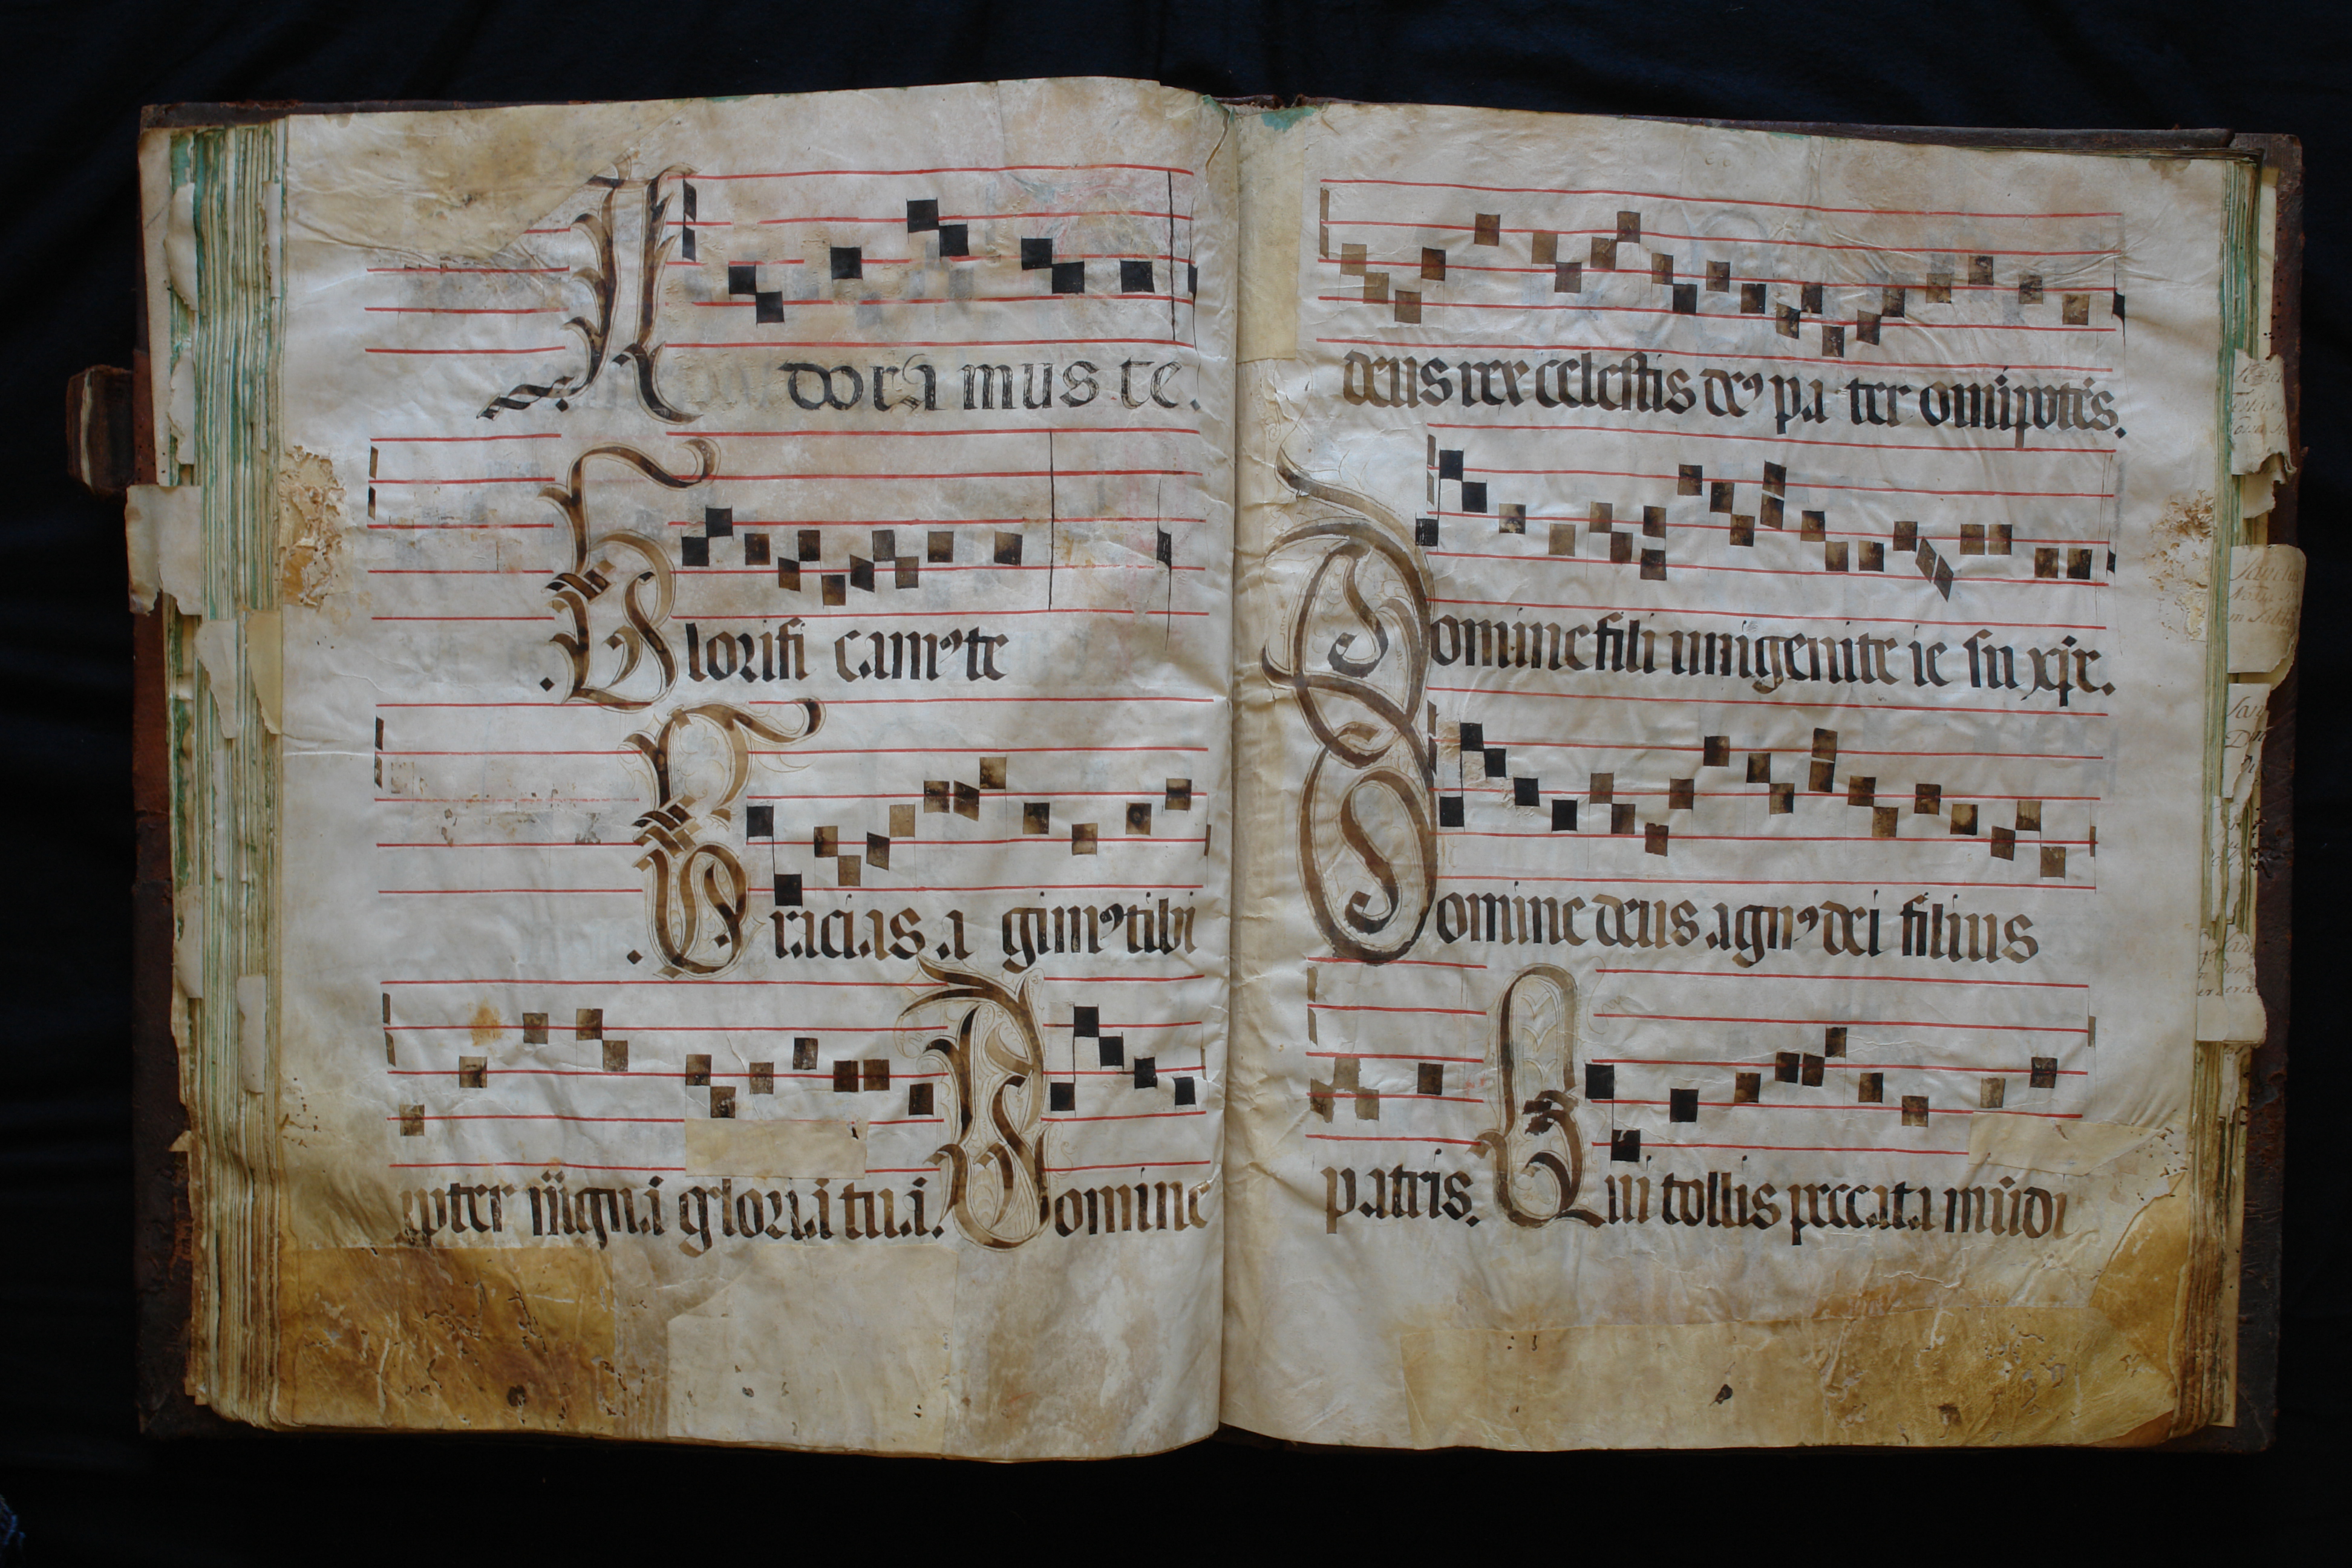 Adoramus te.
.Glorifi camꝰ te
.Gracias a gimꝰ tibi
ꝓpter mꝭgna gloria tua. Domine
deus rex celestis deꝰ pa ter omīpotēs.
Domine fili unigenite ie su xp̄e.
Domine deus agnꝰ dei filius
patris. Qui tollis peccata mūdi